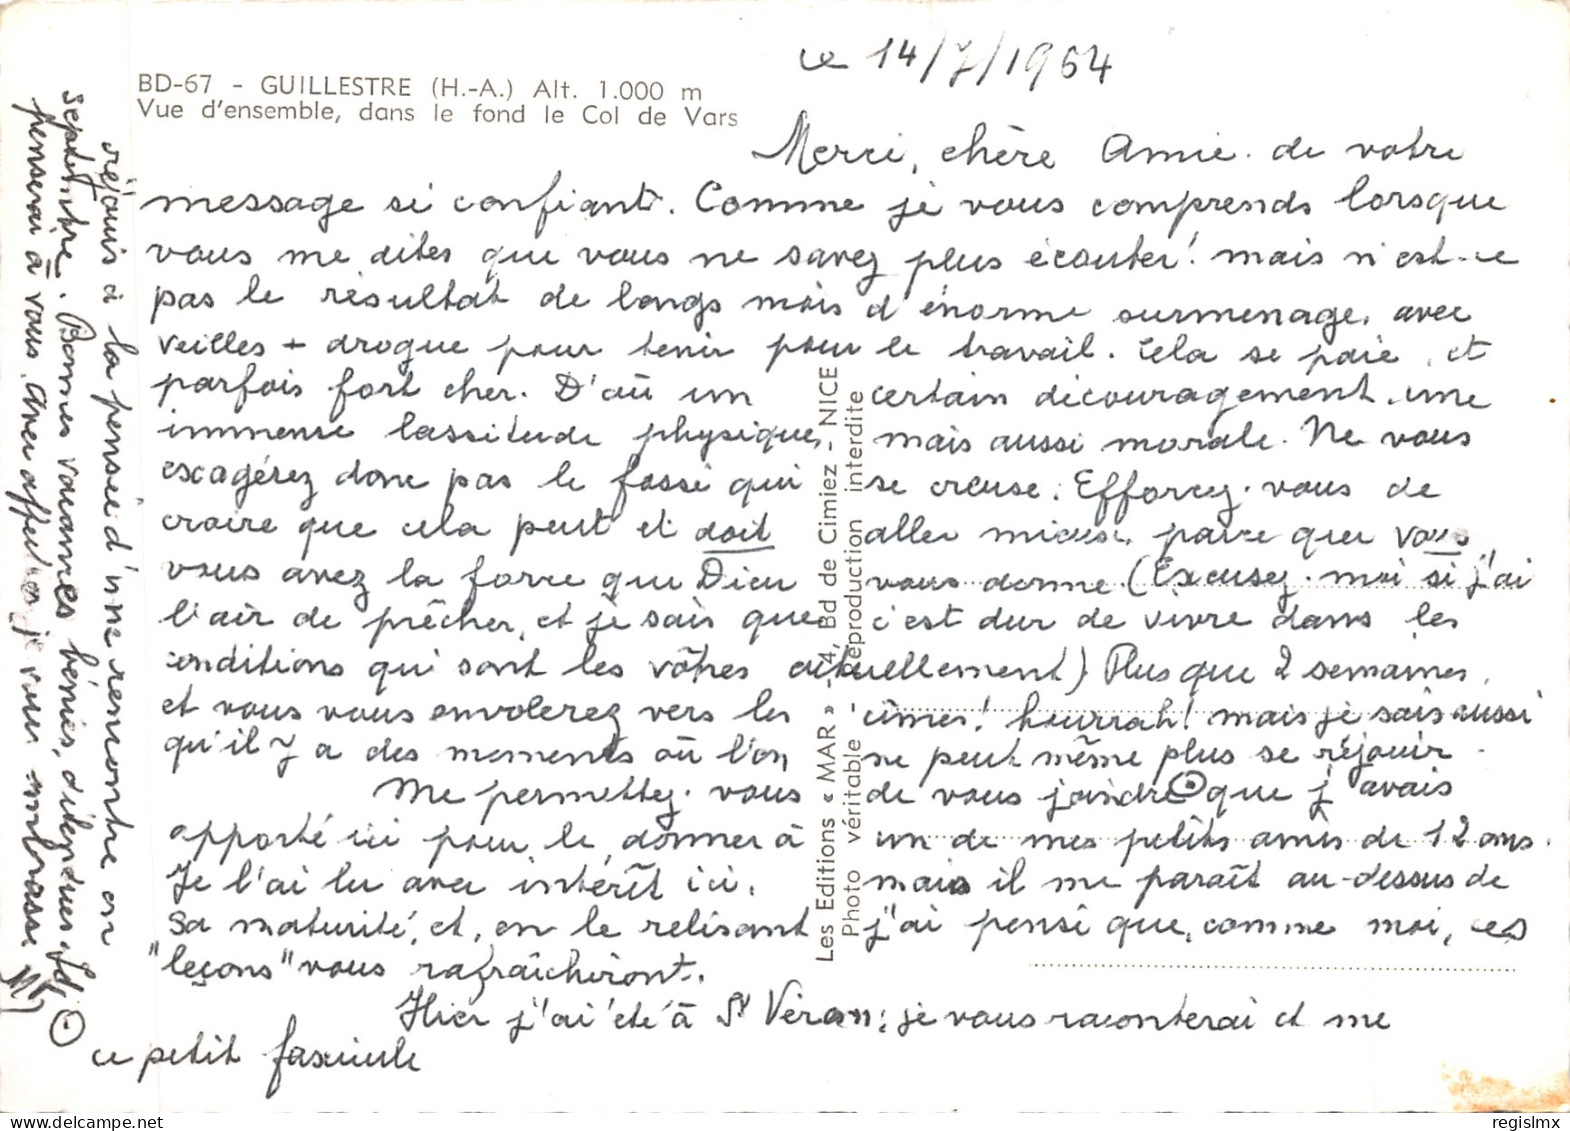 ce 14/7/1964
BD-67 - GUILLESTRE (H.-A.) Alt. 1.000 m
Vue d'ensemble, dans le fond le Col de Vars
Merci, chère Amie. de votre
message si confiant. Comme je vous comprends lorsque
vous me dites que vous ne savez plus écouter! mais n'est-ce
pas le résultat de longs mois d'énorme surmenage, avec
veilles + drogue pour tenir pour le travail. Cela se paie, et
parfois fort cher. D'où un certain découragement, une
immense lassitude physique, mais aussi morale. Ne vous
exagérez donc pas le fossé qui se creuse. Efforcez-vous de
croire que cela peut et doit aller mieux, parce que vous
vous avez la force que Dieu vous donne (Excusez-moi si j'ai
l'air de prêcher, et je sais que c'est dur de vivre dans les
conditions qui sont les vôtres actuellement) Plus que 2 semaines,
et vous vous envolerez vers les cîmes! hourrah! mais je sais aussi
qu'il y a des moments où l'on ne peut même plus se réjouir.
Me permettez-vous de vous joindre ⊙ que j'avais
apporté ici pour le donner à un de mes petits amis de 12 ans.
Je l'ai lu avec intérêt ici, mais il me paraît au-dessus de
sa maturité, et, en le relisant j'ai pensé que, comme moi, ces
"leçons" vous rafraîchiront.
Hier j'ai été à St Véran; je vous raconterai et me
réjouis à la pensée d'une rencontre en
septembre. Bonnes vacances bénies, détendues.
penserai à vous. Avec affection je vous embrasse
⊙ ce petit fascicule
Les Editions « MAR » - 4, Bd de Cimiez - NICE
Photo véritable - Reproduction interdite
regislmx